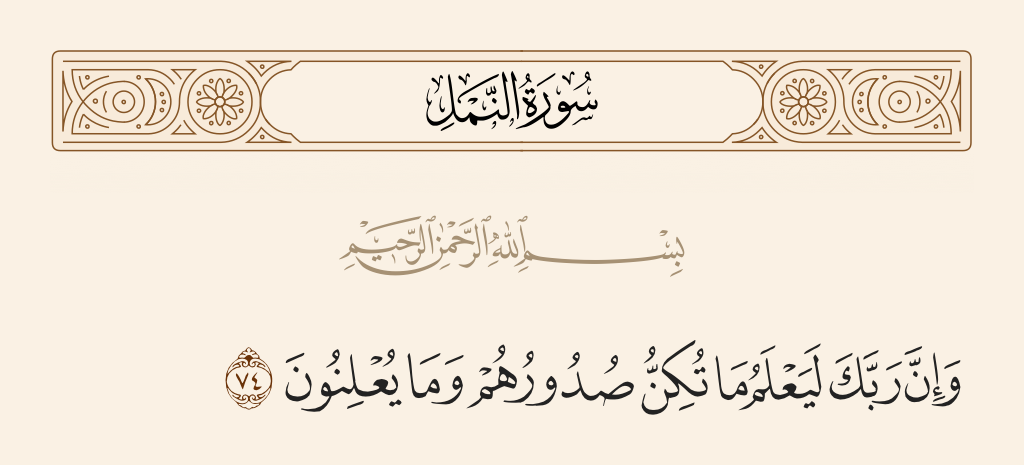 سُورَةُ النَّمْلِ
بِسْمِ ٱللَّهِ ٱلرَّحْمَٰنِ ٱلرَّحِيمِ
وَإِنَّ رَبَّكَ لَيَعْلَمُ مَا تُكِنُّ صُدُورُهُمْ وَمَا يُعْلِنُونَ ٧٤